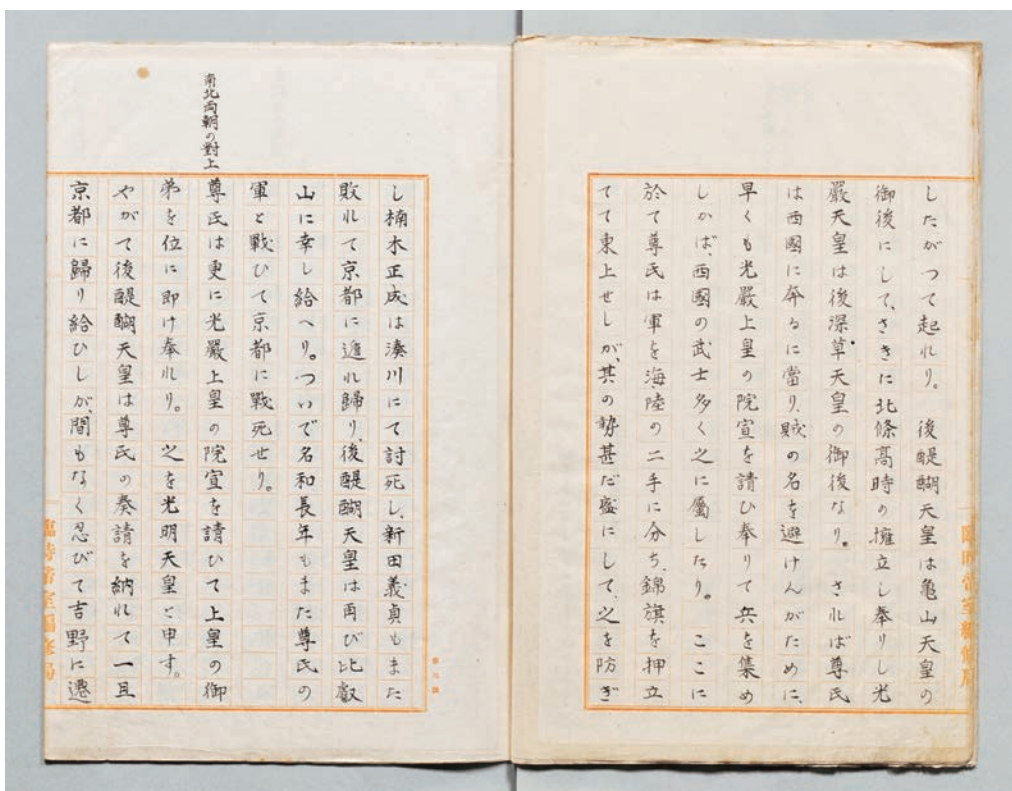 したがつて起れり。　後醍醐天皇は亀山天皇の
御後にして、さきに北條高時の擁立し奉りし光
嚴天皇は後深草天皇の御後なり。　されば尊氏
は西國に奔るに當り、賊の名を避けんがために、
早くも光嚴上皇の院宣を請ひ奉りて兵を集め
しかば、西國の武士多く之に屬したり。　ここに
於て尊氏は軍を海陸の二手に分ち、錦旗を押立
てて東上せしが、其の勢甚だ盛にして、之を防ぎ
し楠木正成は湊川にて討死し、新田義貞もまた
敗れて京都に遁れ歸り、後醍醐天皇は再び比叡
山に幸し給へり。ついで名和長年もまた尊氏の
軍と戰ひて京都に戰死せり。
南北両朝の對上
尊氏は更に光嚴上皇の院宣を請ひて上皇の御
弟を位に即け奉れり。　之を光明天皇と申す。
やがて後醍醐天皇は尊氏の奏請を納れて一旦
京都に歸り給ひしが、間もなく忍びて吉野に遷